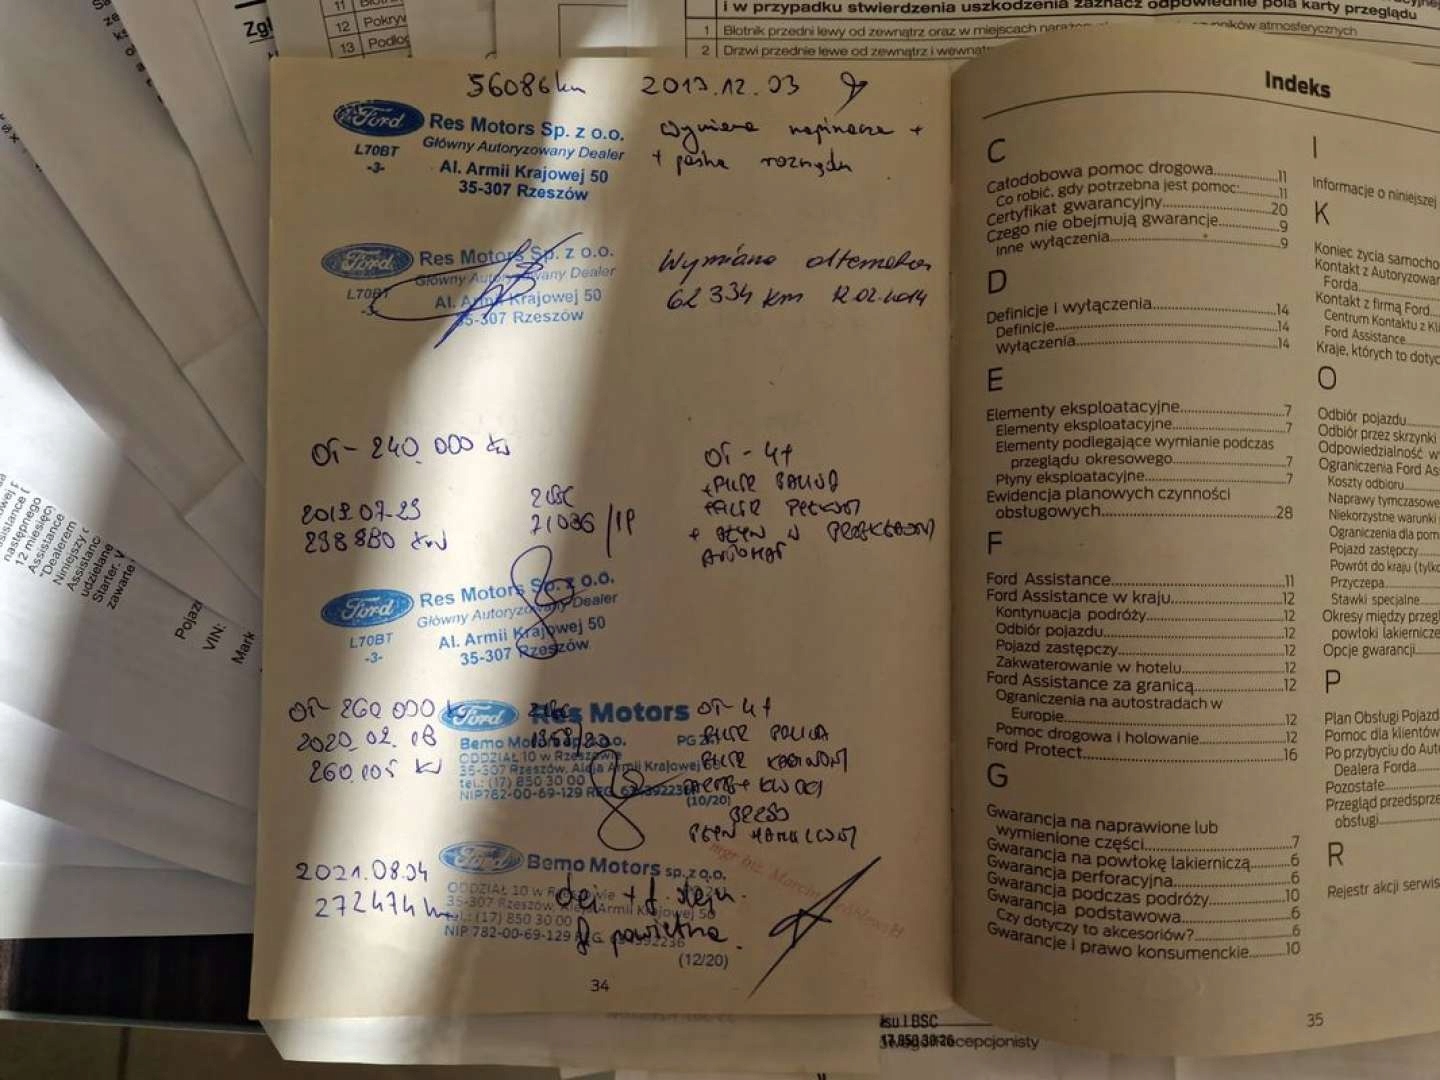 11
12 Pokryw
13 Podłog
i w przypadku stwierdzenia uszkodzenia zaznacz odpowiednie pola karty przeglądu
1 Błotnik przedni lewy od zewnątrz oraz w miejscach
atmosferycznych
2 Drzwi przednie lewe od zewnątrz i wewnątrz
56086 km 2013.12.03
Ford
L70BT
-3-
Res Motors Sp. z o.o.
Główny Autoryzowany Dealer
Al. Armii Krajowej 50
35-307 Rzeszów
Wymiana napinacza +
+ paska rozrządu
Ford
L70BT
-3-
Res Motors Sp. z o.o.
Główny Autoryzowany Dealer
Al. Armii Krajowej 50
35-307 Rzeszów
Wymiana alternatora
62 334 km 12.02.2014
OT - 240.000 km
2019.07.23
238 880 km
OT - 4+
+ FILTR PALIWA
+ FILTR PYŁKOWY
+ PŁYN W PRZEKŁADNI
AUTOMAT
Ford
L70BT
-3-
Res Motors Sp. z o.o.
Główny Autoryzowany Dealer
Al. Armii Krajowej 50
35-307 Rzeszów
OT - 260 000 k
2020.02.18
260.105 km
Ford Res Motors
Bemo Motors sp. z o.o.
ODDZIAŁ 10 w Rzeszowie
35-307 Rzeszów, Aleja Armii Krajowej 50
tel.: (17) 850 30 00
NIP 782-00-69-129
(10/20)
OT - 4+
FILTR PALIWA
FILTR KABINOWY
PŁYN HAMULCOWY
2021.08.04
272474 km
Ford Bemo Motors sp. z o.o.
ODDZIAŁ 10 w Rzeszowie
35-307 Rzeszów, Aleja Armii Krajowej 50
tel.: (17) 850 30 00
NIP 782-00-69-129
(12/20)
olej + f. oleju
f powietrza
34
Indeks
C
Całodobowa pomoc drogowa...11
Co robić, gdy potrzebna jest pomoc:...11
Certyfikat gwarancyjny...20
Czego nie obejmują gwarancje...9
Inne wyłączenia...9
D
Definicje i wyłączenia...14
Definicje...14
Wyłączenia...14
E
Elementy eksploatacyjne...7
Elementy eksploatacyjne...7
Elementy podlegające wymianie podczas
przeglądu okresowego...7
Płyny eksploatacyjne...7
Ewidencja planowych czynności
obsługowych...28
F
Ford Assistance...11
Ford Assistance w kraju...12
Kontynuacja podróży...12
Odbiór pojazdu...12
Pojazd zastępczy...12
Zakwaterowanie w hotelu...12
Ford Assistance za granicą...12
Ograniczenia na autostradach w
Europie...12
Pomoc drogowa i holowanie...12
Ford Protect...16
G
Gwarancja na naprawione lub
wymienione części...7
Gwarancja na powłokę lakierniczą...6
Gwarancja perforacyjna...6
Gwarancja podczas podróży...10
Gwarancja podstawowa...6
Czy dotyczy to akcesoriów?...6
Gwarancje i prawo konsumenckie...10
I
Informacje o niniejszej
K
Koniec życia samocho
Kontakt z Autoryzowan
Forda
Kontakt z firmą Ford
Centrum Kontaktu z Kli
Ford Assistance
Kraje, których to dotyc
O
Odbiór pojazdu
Odbiór przez skrzynki
Odpowiedzialność w
Ograniczenia Ford As
Koszty odbioru
Naprawy tymczasowe
Niekorzystne warunki
Ograniczenia dla pom
Pojazd zastępczy
Powrót do kraju (tylko
Przyczepa
Stawki specjalne
Okresy między przegl
powłoki lakiernicze
Opcje gwarancji
P
Plan Obsługi Pojazd
Pomoc dla klientów
Po przybyciu do Auto
Dealera Forda
Pozostałe
Przegląd przedsprze
obsługi
R
Rejestr akcji serwis
35
następnego
12 miesięcy
Assistance
"Dealerem
Niniejszy
udzielane
Starter.
zawarte
Pojaz
VIN:
Mark